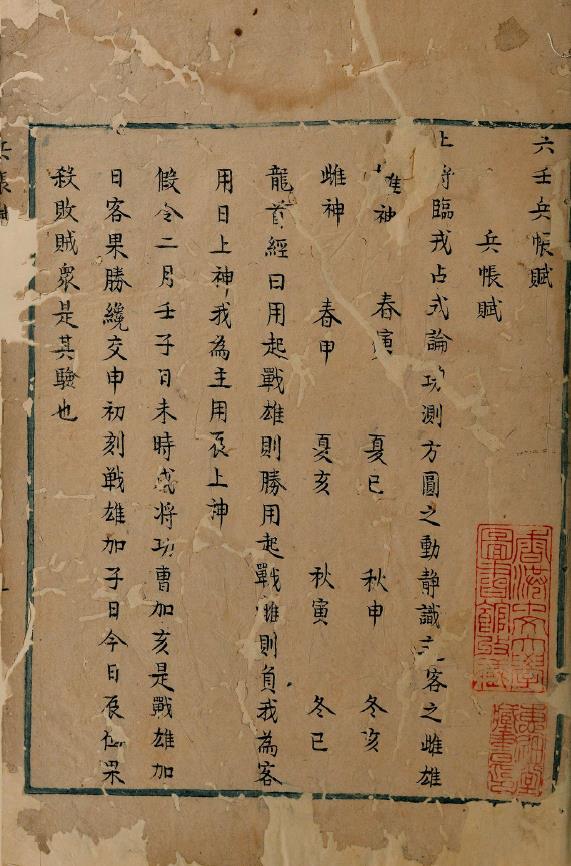 六壬兵帳賦
兵帳賦
上將臨戎占式論功測方圓之動静識主客之雌雄
雄神 春寅 夏巳 秋申 冬亥
雌神 春甲 夏亥 秋寅 冬巳
龍首經曰用起戰雄則勝用起戰雌則負我為客
用日上神我為主用辰上神
假令二月壬子日未時戌將功曹加亥是戰雄加
日客果勝纔交申初刻戰雄加子日今日辰果
殺敗賊衆是其驗也